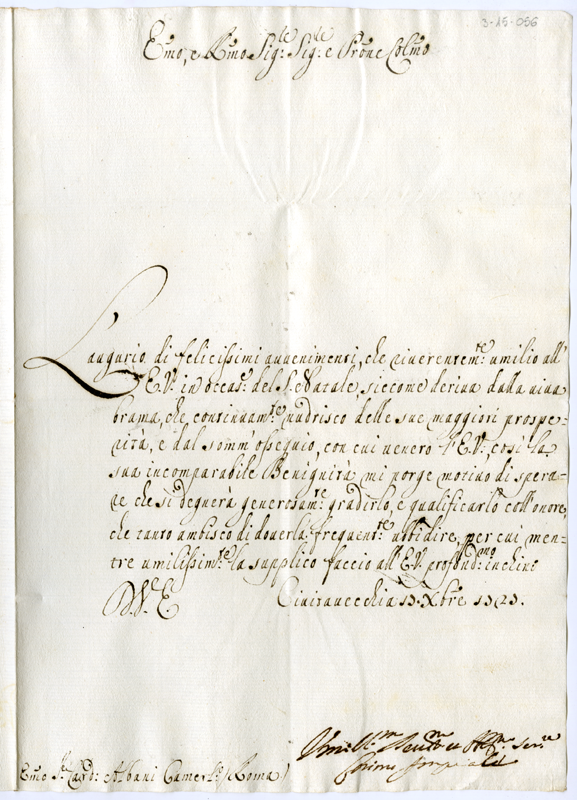 3-15-056
Emo, e Rmo Sig:re Sig:re e Prone Colmo
L'augurio di felicissimi avvenimenti, che riverentem:te umilio all'
E.V. in occas:e del S. Natale, siccome deriva dalla viva
brama, che continuam:te nudrisco delle sue maggiori prospe-
rità, e dal somm'ossequio, con cui venero l'E.V., così la
sua incomparabile Benignità mi porge motivo di spera-
re che si degnerà generosam:te gradirlo, e qualificarlo coll'onore,
che tanto ambisco di doverla frequent:te ubbidire, per cui men-
tre umilissim:te la supplico faccio all'E.V. profond:mo inchino
D. V. E. Civitavecchia 13. Xbre 1723.
Umil:mo Devot:mo et Obl:mo Ser:re
Emo S:r Card: Albani Camerl:o (Roma)